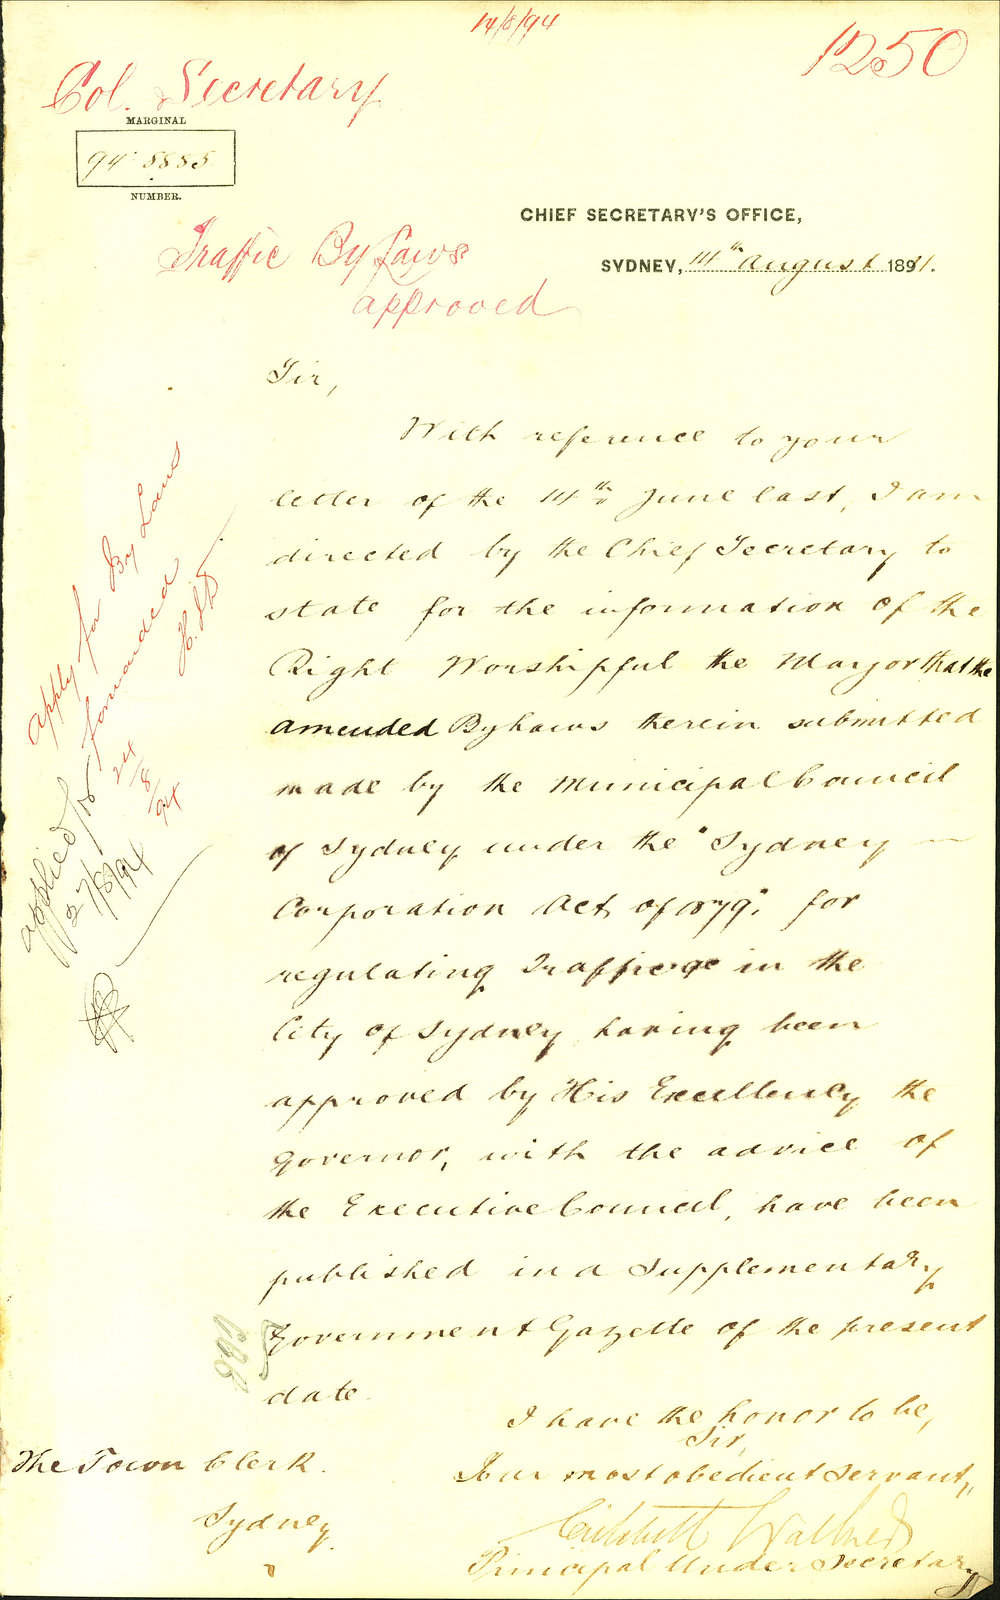 14/8/94
1250
Col. Secretary
MARGINAL
94·5885
NUMBER.
CHIEF SECRETARY'S OFFICE,
SYDNEY, 14th August 1894.
Traffic By Laws
approved
Sir,
With reference to your
letter of the 14th June last, I am
directed by the Chief Secretary to
state for the information of the
Right Worshipful the Mayor that the
amended By Laws therein submitted
made by the Municipal Council
of Sydney under the "Sydney
Corporation Act of 1879", for
regulating Traffic in the
City of Sydney having been
approved by His Excellency the
Governor, with the advice of
the Executive Council, have been
published in a Supplementary
Government Gazette of the present
date.
I have the honor to be,
Sir,
Your most obedient servant,
Critchett Walker
Principal Under Secretary
The Town Clerk.
Sydney.
Apply for By Laws
forwarded
24/8/94
applied for
27/8/94